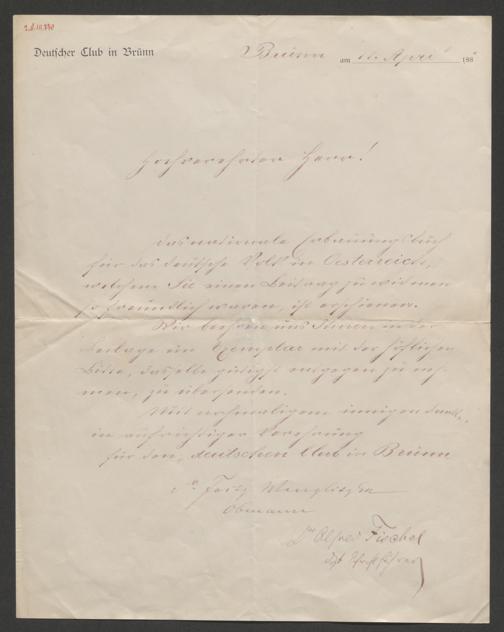 Deutscher Club in Brünn
Brünn am April 188
Hochverehrter Herr!
Das nationale Erbauungsbuch
für das deutsche Volk in Oesterreich,
welchem Sie einen Beitrag zu widmen
so freundlich waren, ist erschienen.
Wir beehren uns Ihnen in der
Beilage ein Exemplar mit der höflichen
Bitte, dasselbe gütigst entgegen zu neh-
men, zu übersenden.
Mit nochmaligem innigen Dank
in aufrichtiger Verehrung
für den deutschen Club in Brünn
Dr. Fritz
Obmann
Dr Alfred Fischel
Schriftführer